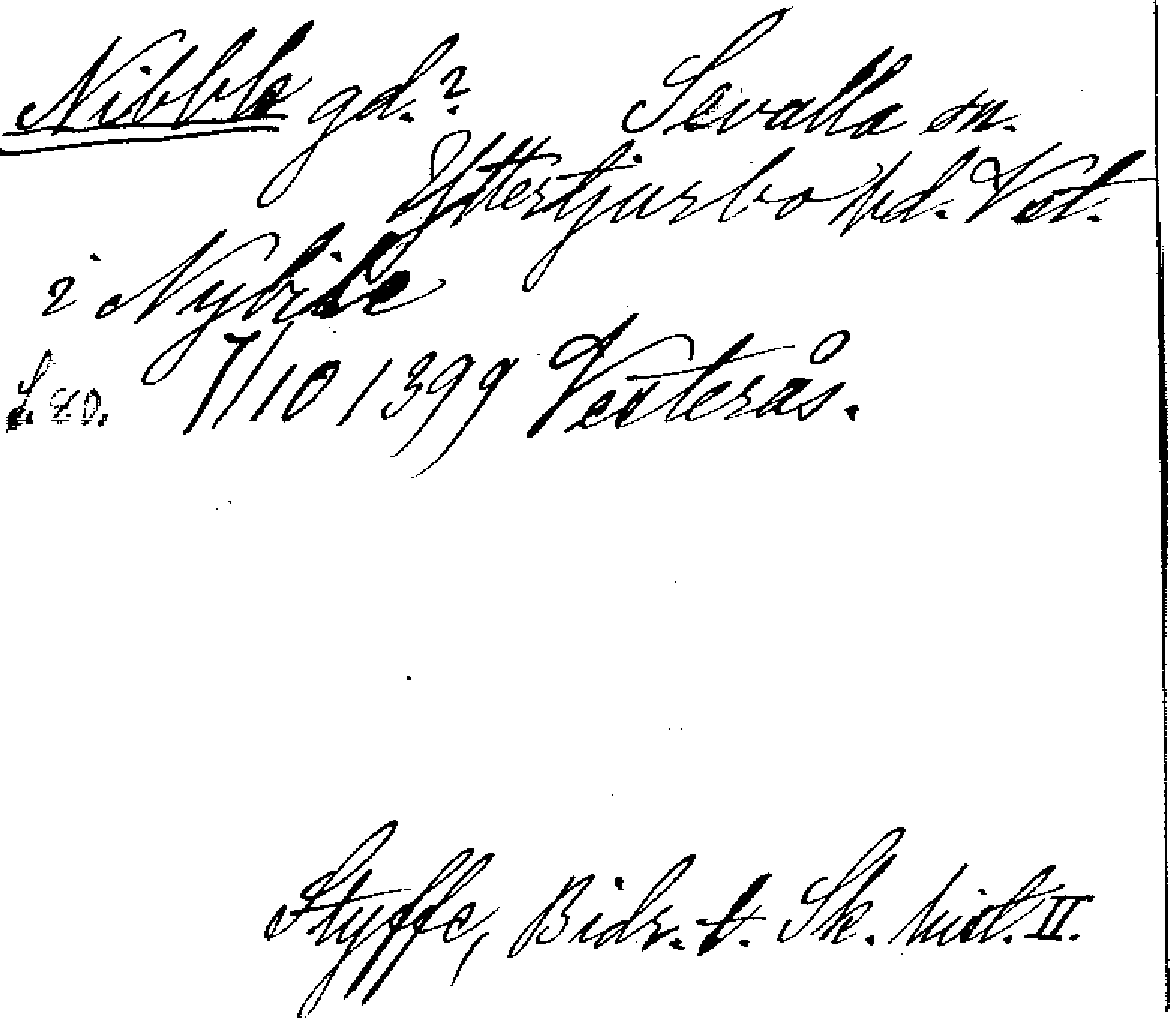 Nibble gd.? Sevalla sn.
Yttertjurbo hd. Vst.
i Nybile
s. 80. 7/10 1399 Vesterås.
Styffe, Bidr. t. Sk. hist. II.